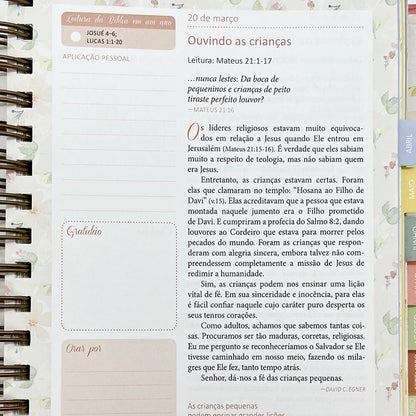 Leitura da Bíblia em um ano
JOSUÉ 4–6;
LUCAS 1:1-20
APLICAÇÃO PESSOAL
Gratidão
Orar por
20 de março
Ouvindo as crianças
Leitura: Mateus 21:1-17
...nunca lestes: Da boca de
pequeninos e crianças de peito
tiraste perfeito louvor?
—MATEUS 21:16
Os líderes religiosos estavam muito equivoca-
dos em relação a Jesus quando Ele entrou em
Jerusalém (Mateus 21:15-16). É verdade que eles sabiam
muito a respeito de teologia, mas não sabiam quem
era Jesus.
Entretanto, as crianças estavam certas. Foram
elas que clamaram no templo: "Hosana ao Filho de
Davi" (v.15). Elas acreditavam que a pessoa que estava
montada naquele jumento era o Filho prometido
de Davi. E cumpriram a profecia do Salmo 8:2, dando
louvores ao Cordeiro que estava para morrer pelos
pecados do mundo. Foram as crianças que respon-
deram com alegria sincera, embora talvez não com-
preendessem completamente a missão de Jesus de
redimir a humanidade.
Sim, as crianças podem nos ensinar uma lição
vital de fé. Em sua sinceridade e inocência, para elas
é fácil confiar naquele cujo caráter puro desperta os
seus tenros corações.
Como adultos, achamos que sabemos tantas coi-
sas. Procuramos ser tão maduras, corretas, religiosas.
Eu me pergunto se reconheceríamos o Salvador se Ele
tivesse caminhado em nosso meio, fazendo os mila-
gres que Ele fez, tanto tempo atrás.
Senhor, dá-nos a fé das crianças pequenas.
—DAVID C. EGNER
As crianças pequenas
podem ensinar grandes lições
ABRIL
MAIO
JUNHO